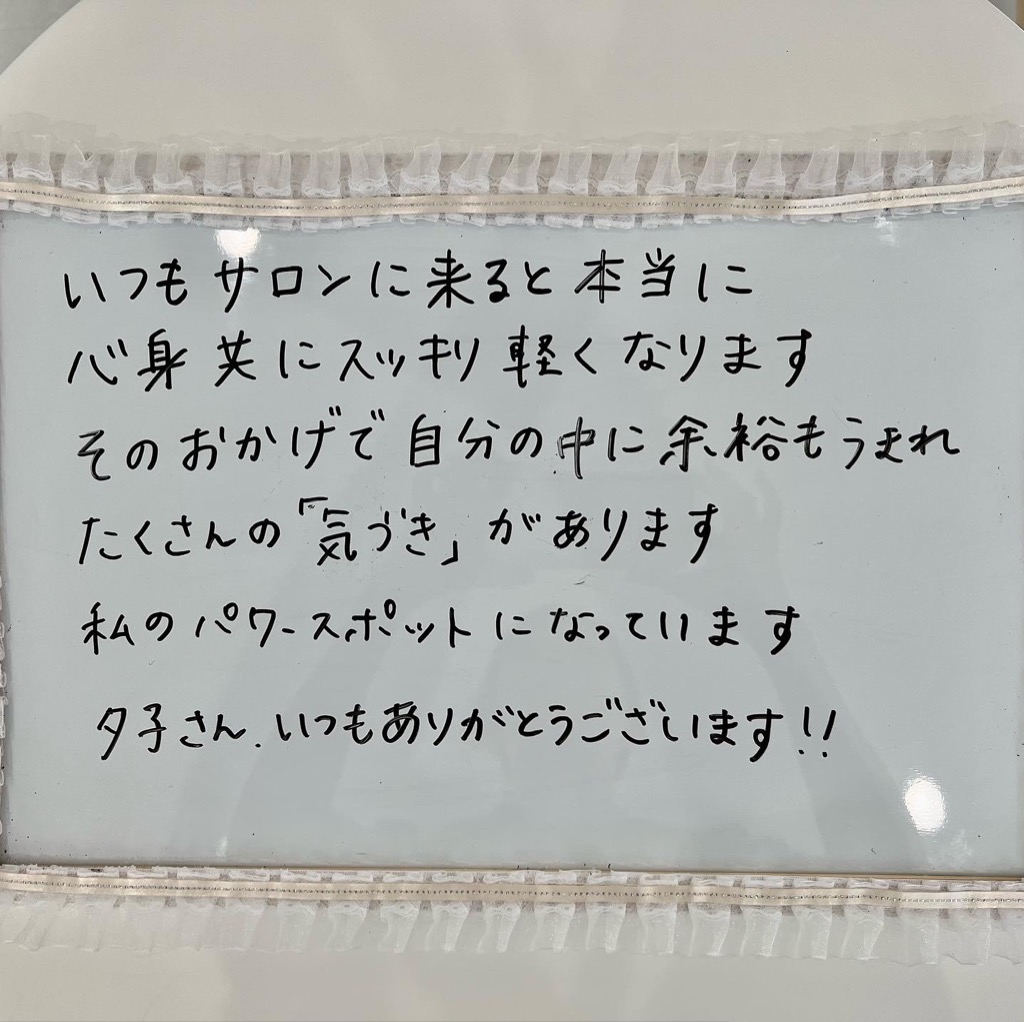 いつもサロンに来ると本当に
心身共にスッキリ軽くなります
そのおかげで自分の中に余裕もうまれ
たくさんの「気づき」があります
私のパワースポットになっています
夕子さん.いつもありがとうございます!!